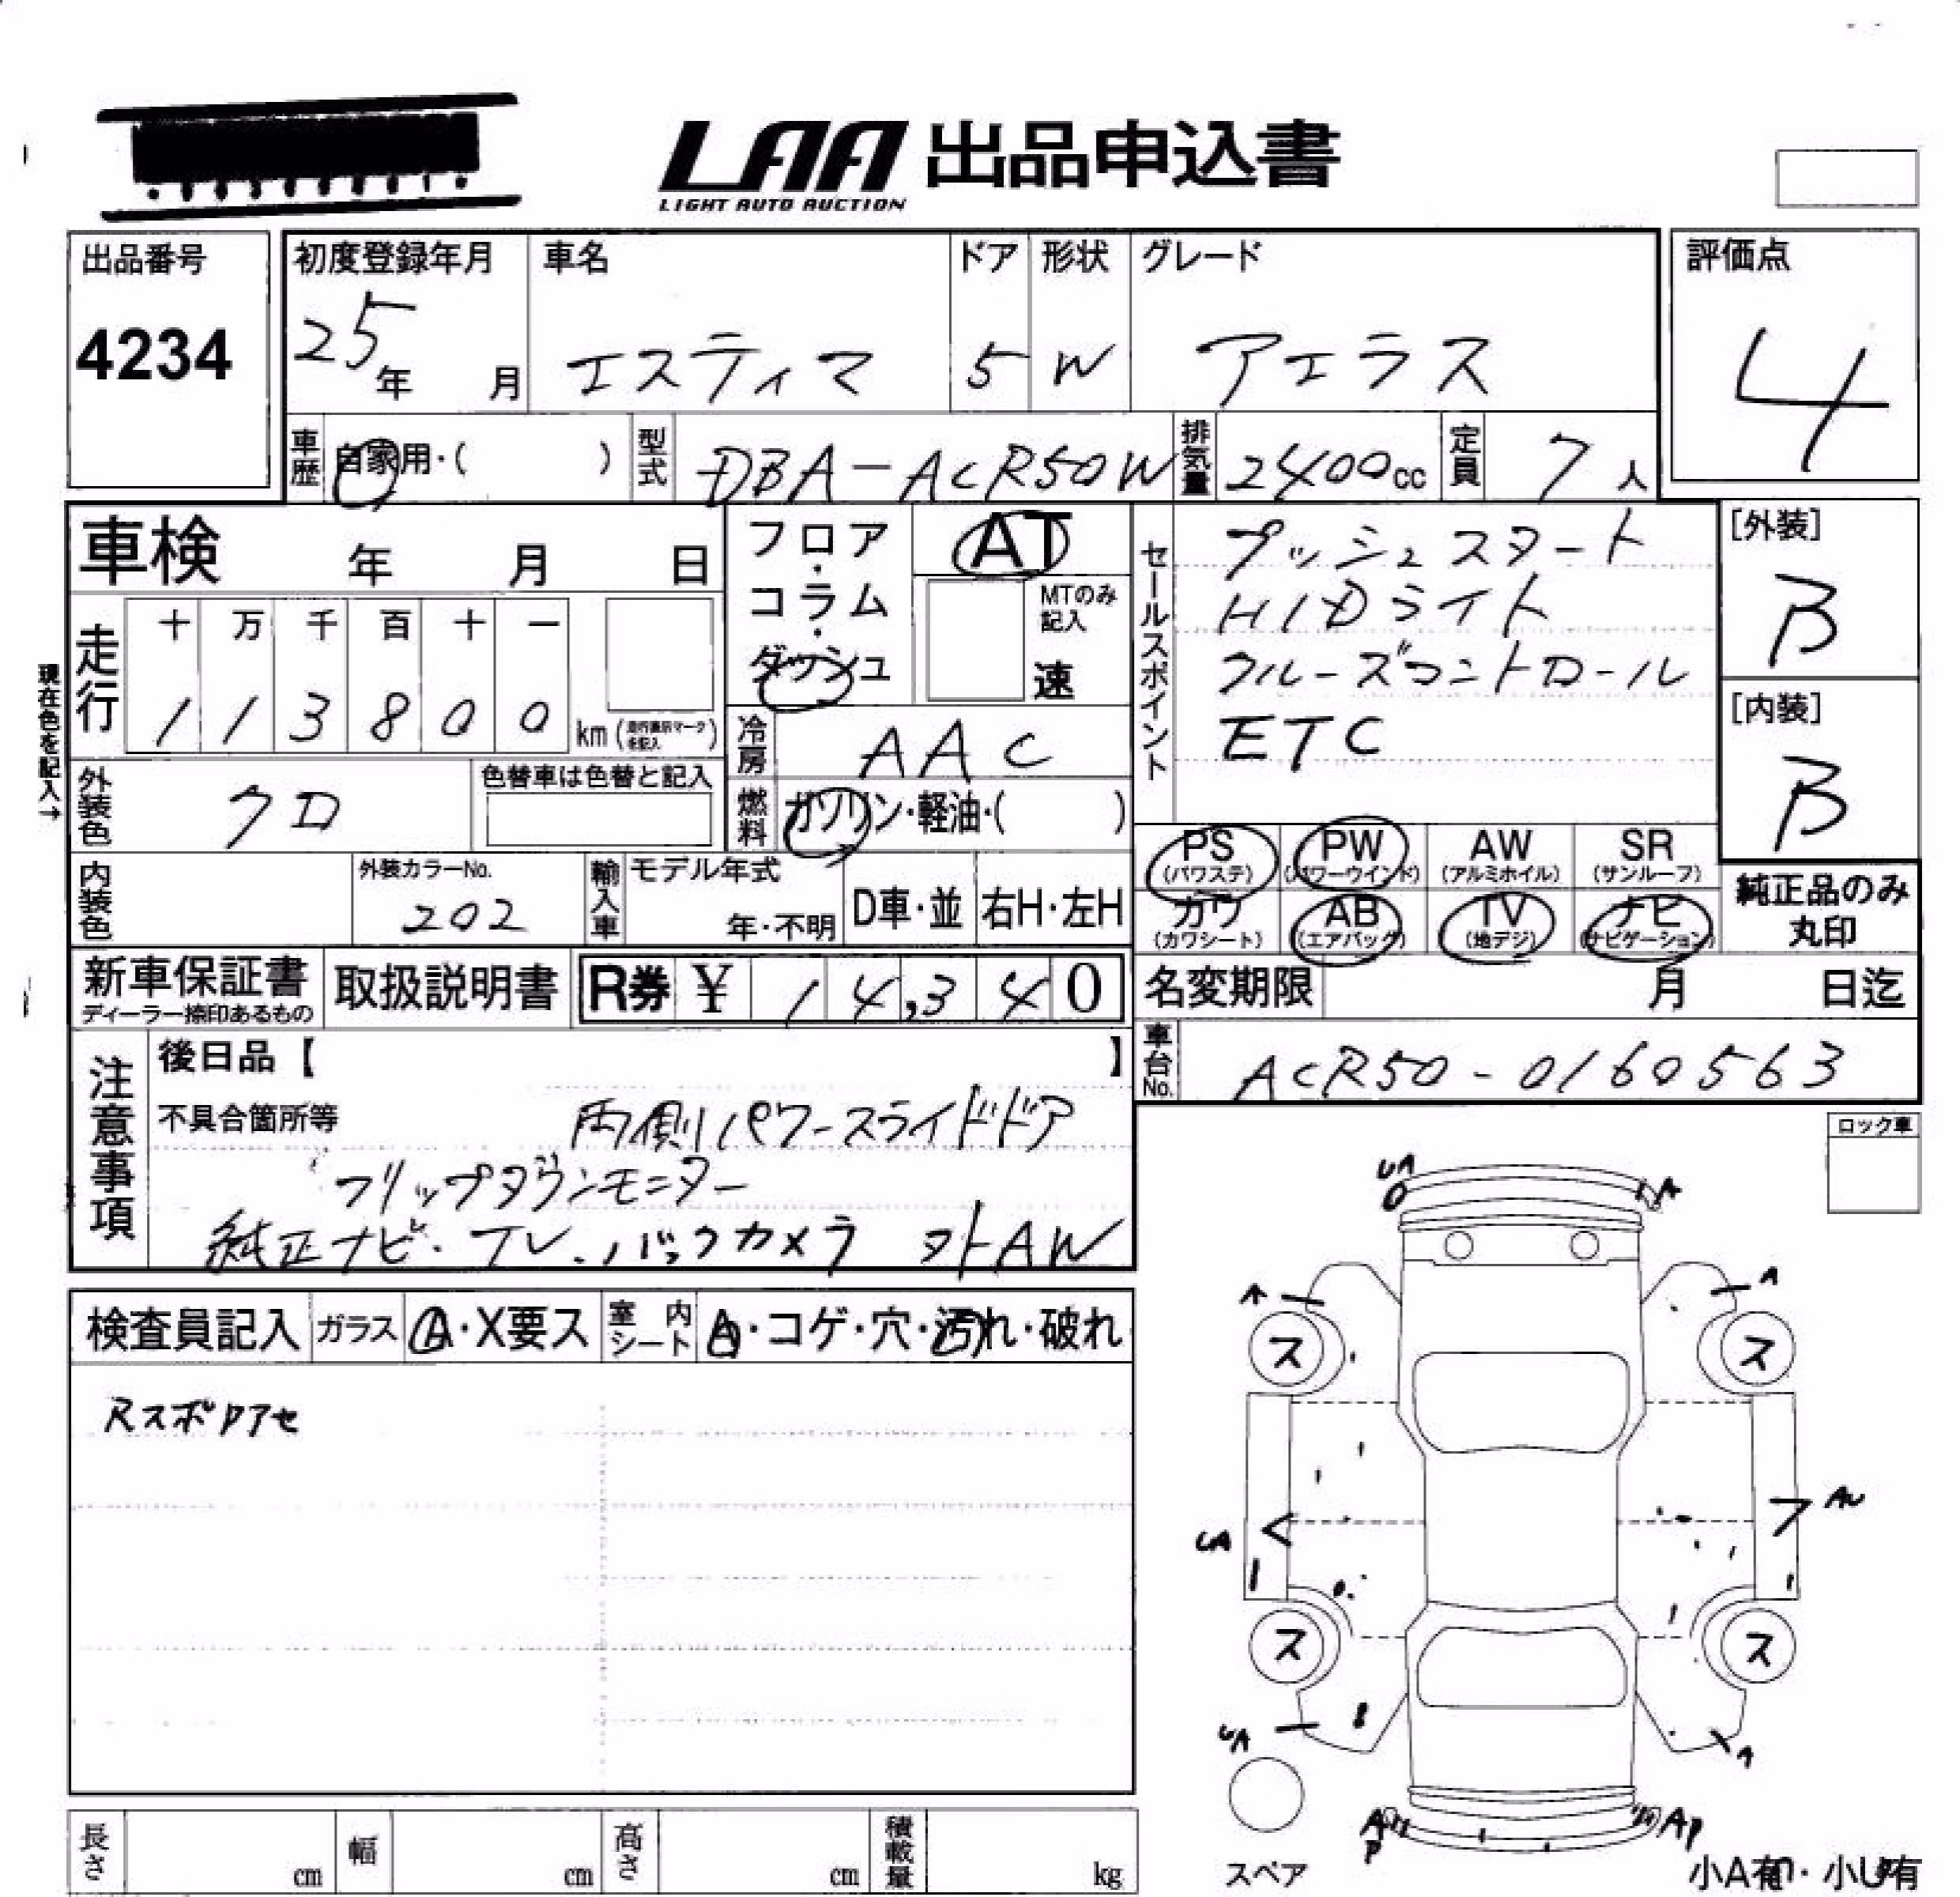 LAA 出品申込書
LIGHT AUTO AUCTION
出品番号
4234
初度登録年月
25年 月
車名
エスティマ
ドア
5
形状
W
グレード
アエラス
評価点
4
車歴 自家用・( )
型式 DBA-ACR50W
排気量 2400cc
定員 7人
車検 年 月 日
フロア・コラム・ダッシュ
AT
MTのみ記入
速
セールスポイント
プッシュスタート
HIDライト
クルーズコントロール
ETC
[外装]
B
[内装]
B
走行
十 万 千 百 十 一
1 1 3 8 0 0 km
現在色を記入→
冷房 AAC
外装色 クロ
色替車は色替と記入
燃料 ガソリン・軽油・( )
PS (パワステ)
PW (パワーウインド)
AW (アルミホイル)
SR (サンルーフ)
カワ (カワシート)
AB (エアバッグ)
TV (地デジ)
ナビ (ナビゲーション)
純正品のみ
丸印
内装色
外装カラーNo.
202
輸入車
モデル年式
年・不明
D車・並
右H・左H
新車保証書
ディーラー捺印あるもの
取扱説明書
R券 ¥ 14,340
名変期限 月 日迄
車台No. ACR50-0160563
注意事項
後日品【 】
不具合箇所等 両側パワースライドドア
フリップダウンモニター
純正ナビ・TV・バックカメラ 外AW
ロック車
検査員記入
ガラス A・X要ス
室内シート A・コゲ・穴・汚れ・破れ
Rスポ
UA
A
A
A
ス
ス
UA
AU
ス
ス
UA
A
AP
AP
スペア
小A有・小U有
長さ cm
幅 cm
高さ cm
積載量 kg